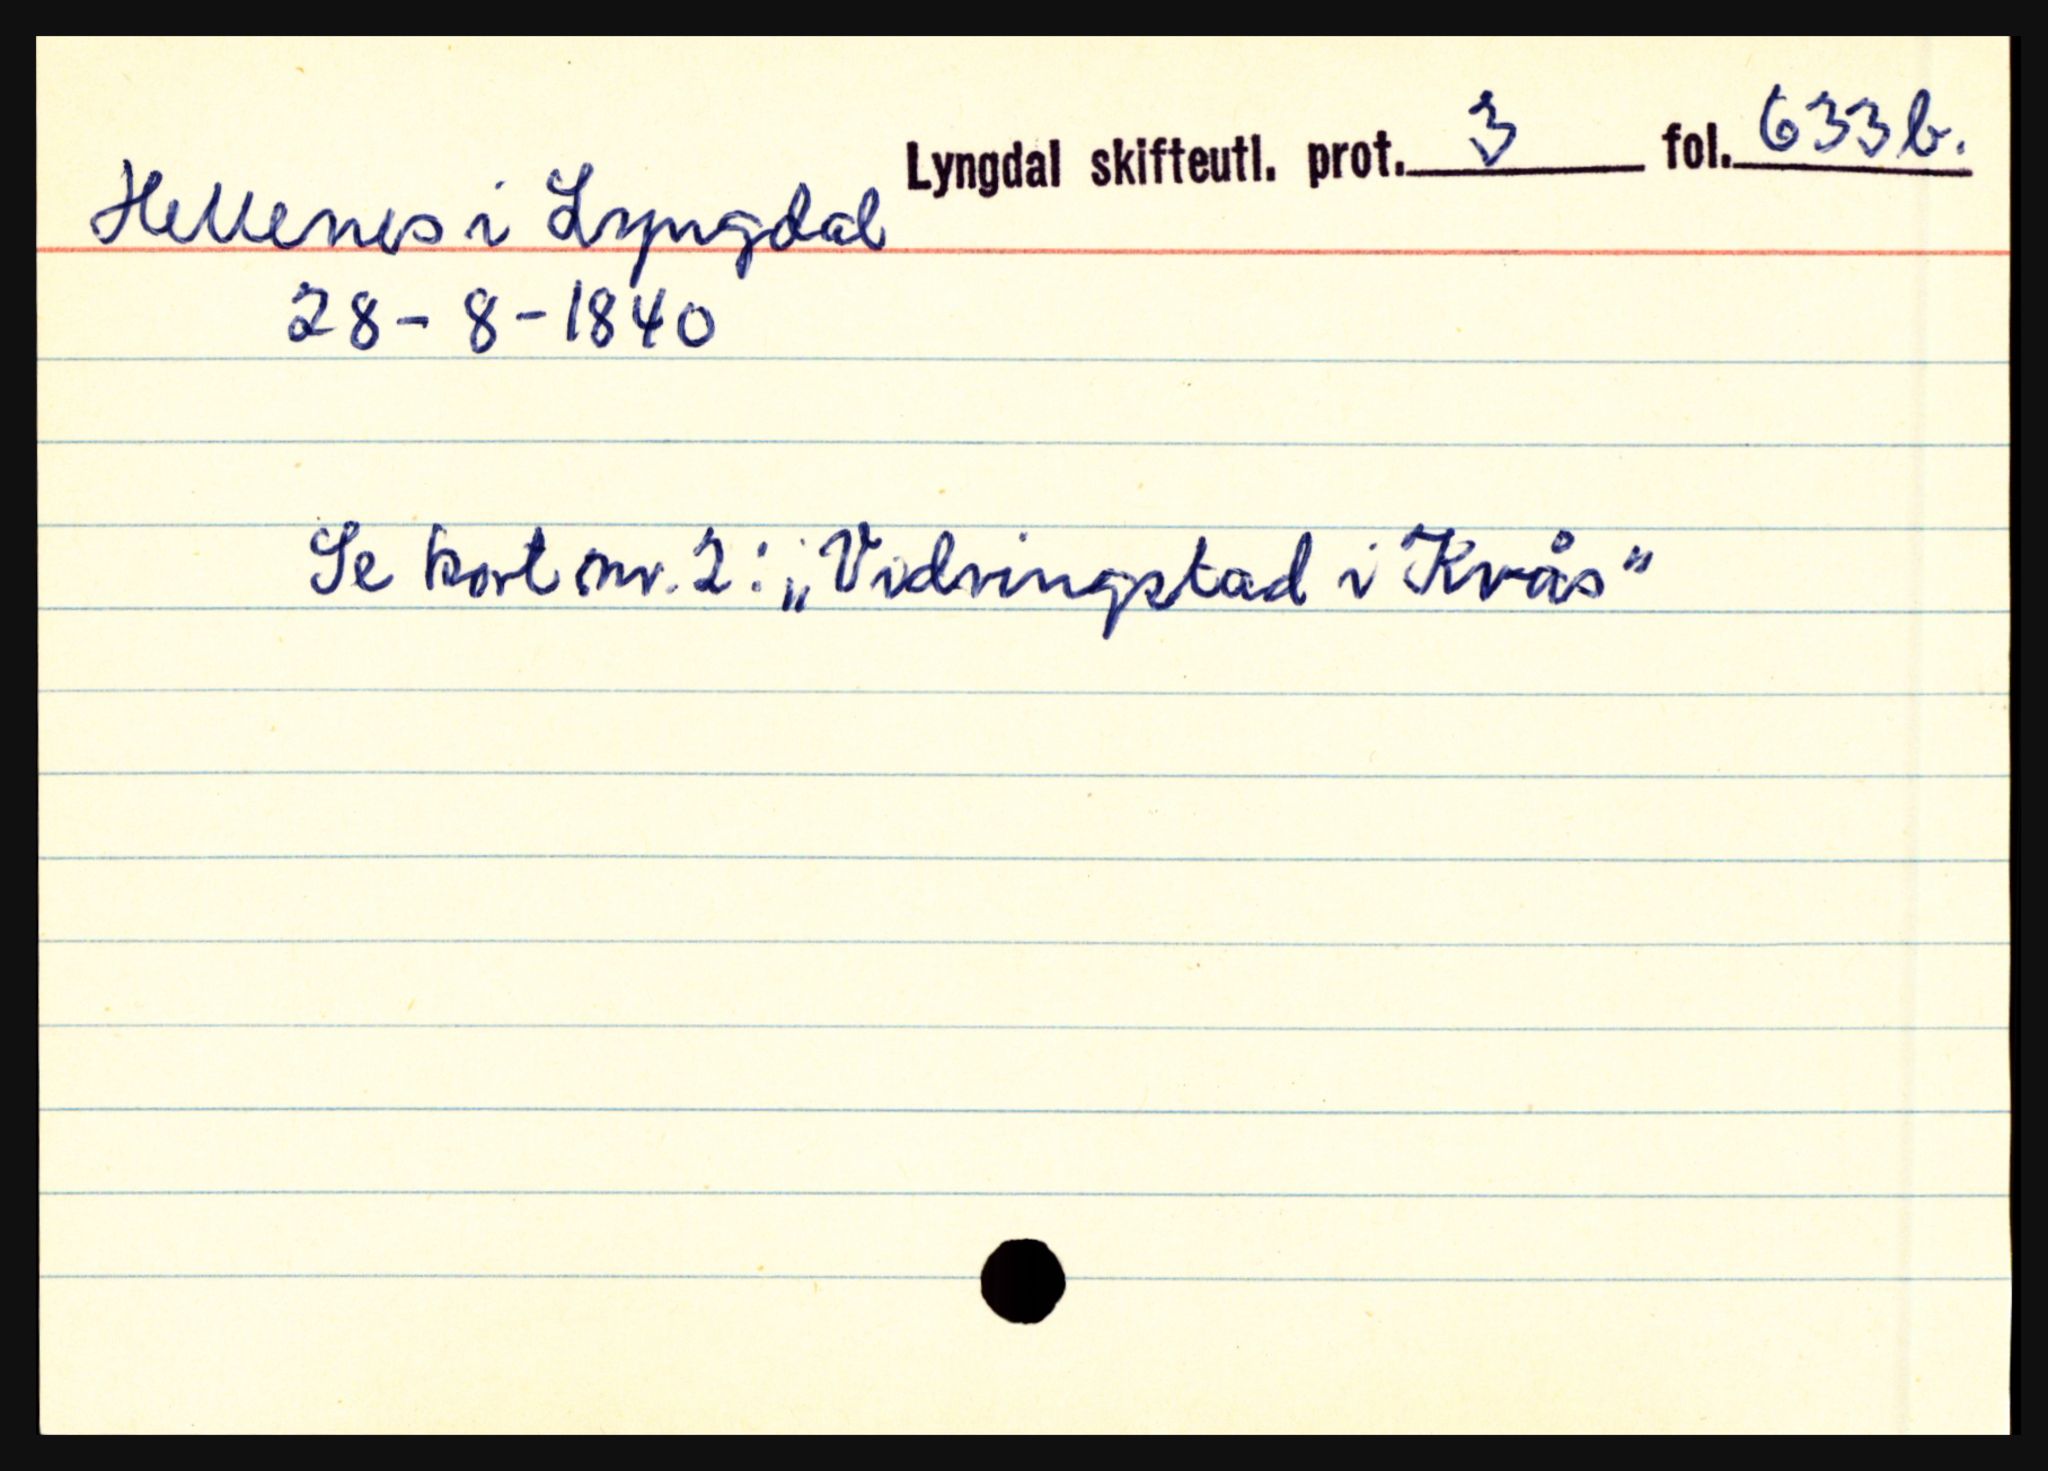 Lyngdal skifteutl. prot. 3 fol. 633b.
Hellenes i Lyngdal
28-8-1840
Se kort nr. 2: „Vidringstad i Kvås"